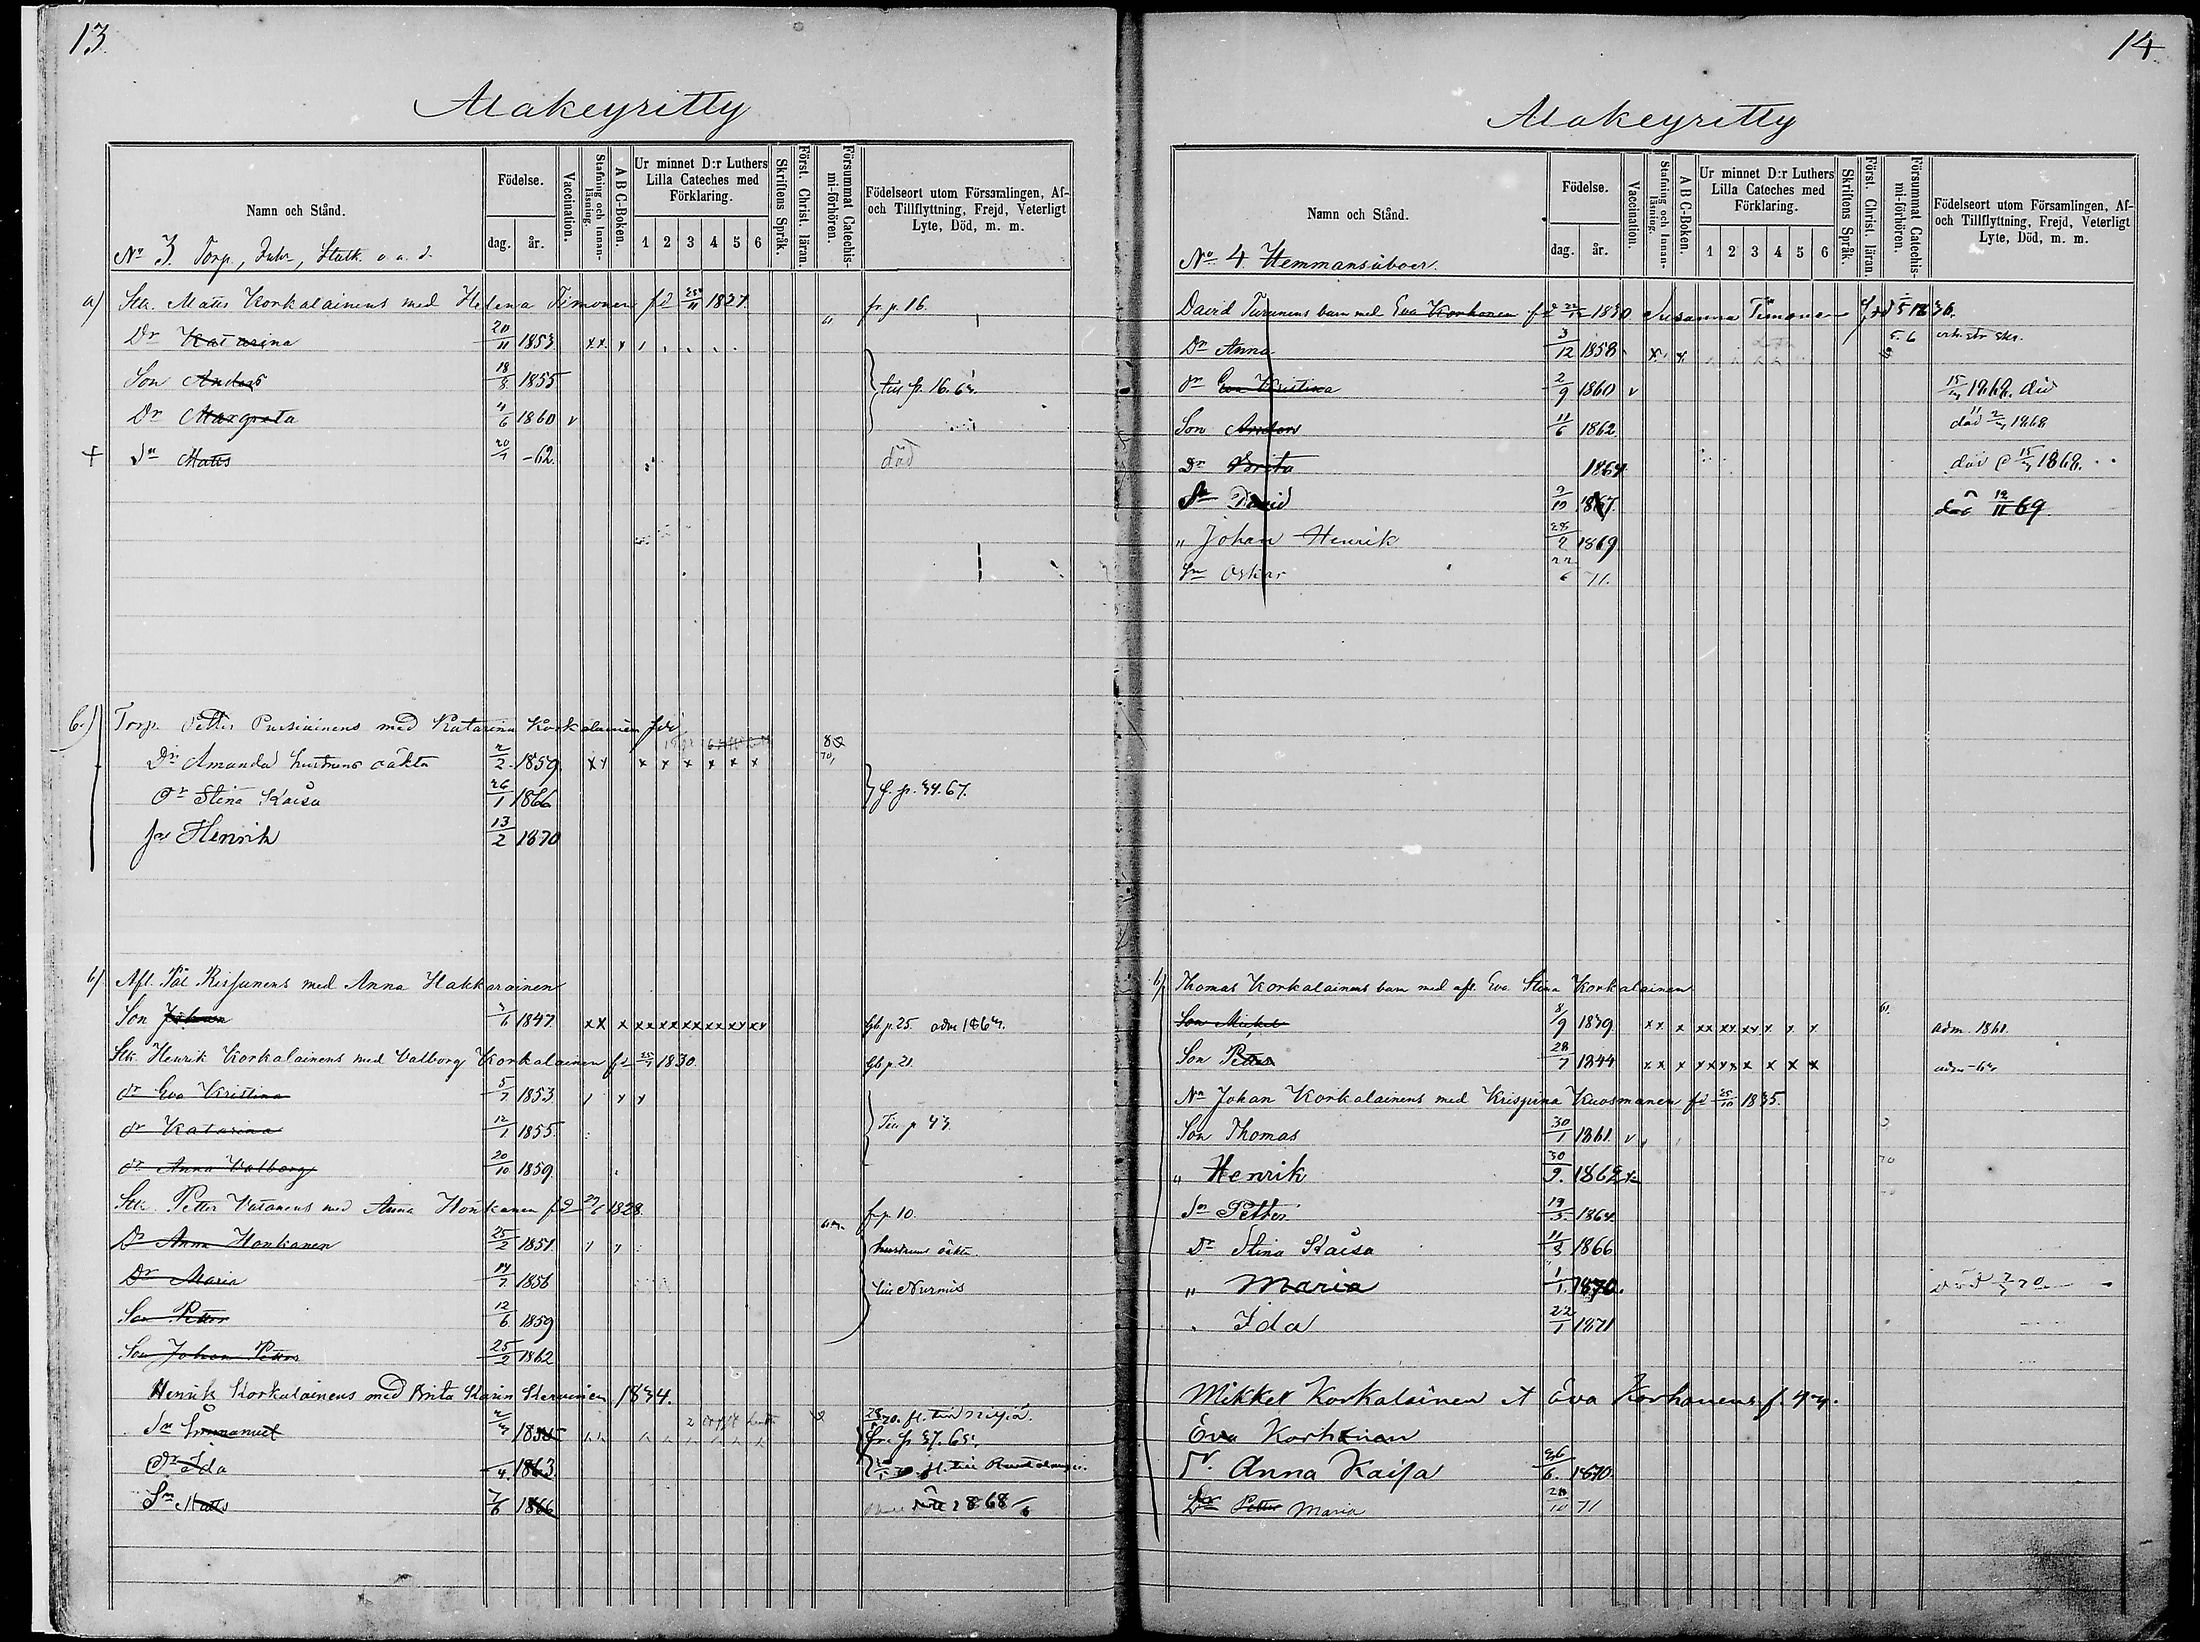 13
Alakeyritty
Namn och Stånd.
Födelse.
dag.
år.
Vaccination.
Stafning och Innanläsning.
A B C-Boken.
Ur minnet D:r Luthers Lilla Cateches med Förklaring.
1 2 3 4 5 6
Skriftens Språk.
Först. Christ. läran.
Försummat Catechismi-förhören.
Födelseort utom Församlingen, Af- och Tillflyttning, Frejd, Veterligt Lyte, Död, m. m.
No 3. Torp., Inhr, Statk. o a. d.
a) Stk. Matts Korkalainens med Helena Timonen fd 25/11 1827. fr. p. 16.
Dr Katarina 20/11 1853 xx x
Son Anders 18/3 1855 till p. 16. 67.
Dr Margreta 4/6 1860 v
+ Sn Matts 20/7 -62. död
b.) Torp. Petter Pursiainens med Katarina Korkalainen
Dr Amanda hustruns oäkta 2/2 1859. xx x x x x x x 70,
Dr Stina Kaisa 26/1 1866 f. p. 34. 67.
Sn Henrik 13/2 1870
b) Afl. Pål Rissanens med Anna Hakkarainen
Son Johan 3/6 1847 xx x xx xx xx xx xx xx Gb. p. 25. adm 1867.
Stk. Henrik Korkalainens med Valborg Korkalainen fd 25/7 1830. Gb. p. 21.
dr Eva Kristina 5/7 1853
dr Katarina 12/1 1855. Till p 47.
dr Anna Valborg 20/10 1859.
Stk. Petter Vatanens med Anna Honkanen fd 29/6 1828. fr. p. 10.
Dr Anna Honkanen 25/2 1851 hustruns oäkta
Dr Maria 14/7 1856 till Nurmis
Son Petter 12/6 1859
Son Johan Petter 25/2 1862
Henrik Korkalainens med Brita Karin 1834.
Sn Emmanuel fr. p 37. 65.
Dr Ida /4 1863
Sn Matts 7/6 1866 1868
14
Alakeyritty
Namn och Stånd.
Födelse.
dag.
år.
Vaccination.
Stafning och Innanläsning.
A B C-Boken.
Ur minnet D:r Luthers Lilla Cateches med Förklaring.
1 2 3 4 5 6
Skriftens Språk.
Först. Christ. läran.
Försummat Catechismi-förhören.
Födelseort utom Församlingen, Af- och Tillflyttning, Frejd, Veterligt Lyte, Död, m. m.
No 4 Hemmansåboer.
David Turunens barn med Eva Korhonen 1830 Susanna Timonen
Dr Anna 3/12 1858
dr Eva Kristina 2/9 1860 v 15/4 1868. död
Son Anders 11/6 1862. död 1868
Dr Brita 1864 död 15/4 1868.
Sn David 9/10 1867. död 12/11 69.
" Johan Henrik 28/2 1869
Sn Oskar 22/6 71.
b) Thomas Korkalainens barn med afl. Eva Stina Korkalainen
Son Mickel 8/9 1839 xx x xx xx xx x x x adm. 1861.
Son Petter 28/7 1844
Nn Johan Korkalainens med Krispina Kuosmanen fd 25/10 1835.
Son Thomas 30/1 1861. v
" Henrik 30/9. 1862 70
Sn Petter 19/5. 1864.
Dr Stina Kaisa 11/3 1866
" Maria 1/1. 1870. död 70
" Ida 22/1 1871
Mikkel Korkalainen Eva Korhonens
Eva Korhonen
Dr. Anna Kaisa 26/6. 1870.
Dr Petter Maria 28/10 71